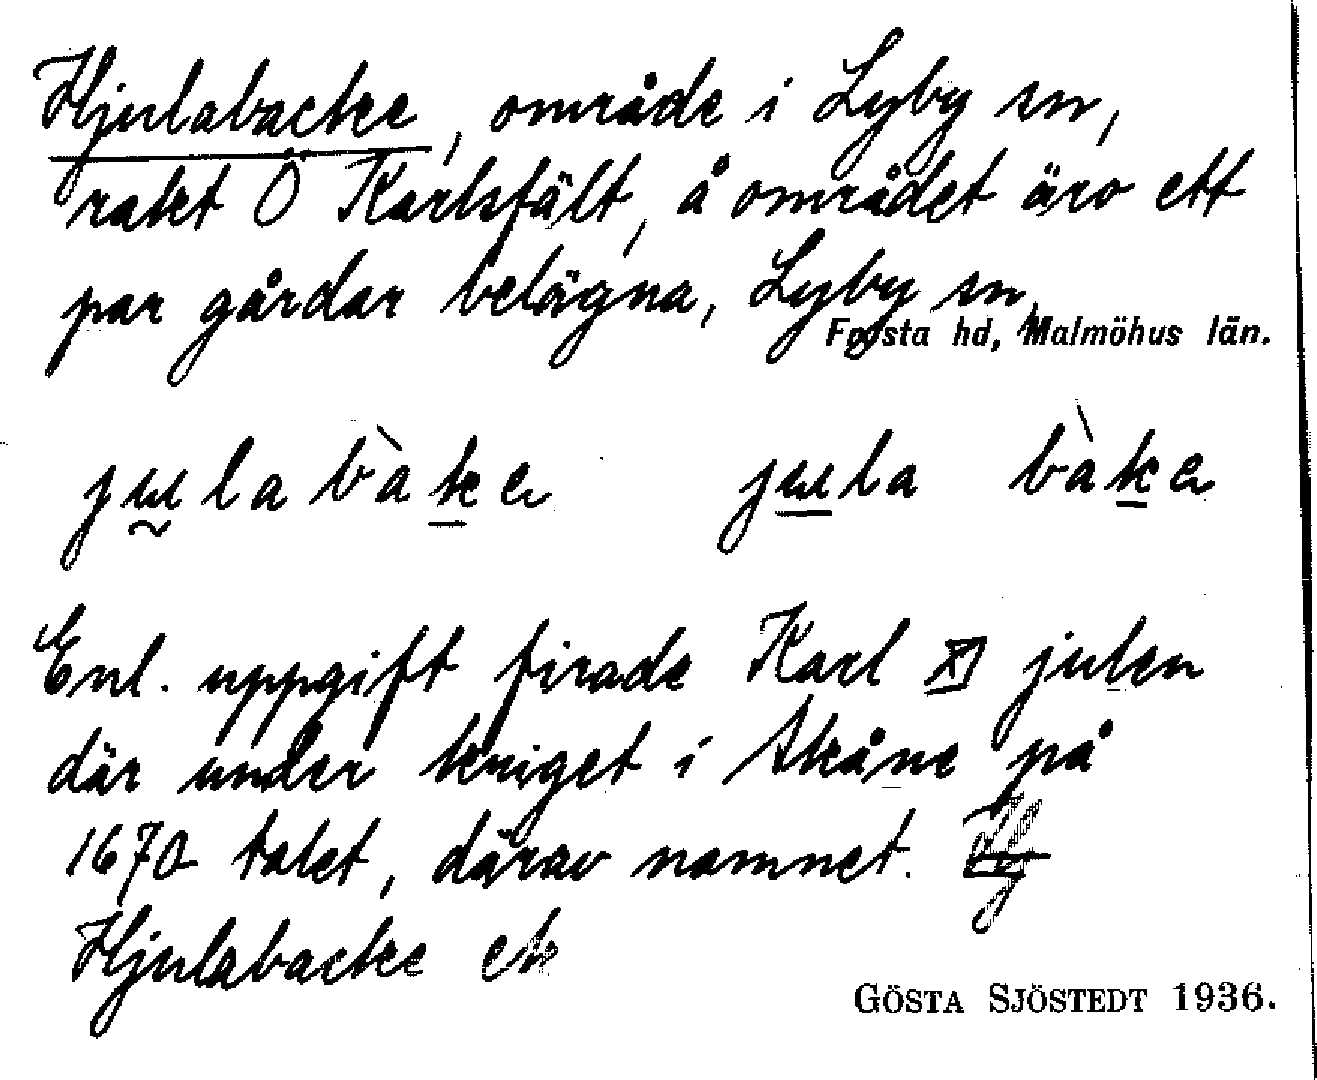 Hjulabacke, område i Lyby sn,
rakt Ö Karlsfält, å området äro ett
par gårdar belägna, Lyby sn,
Frosta hd, Malmöhus län.
julabàke jula bàke
Enl. uppgift firade Karl XI julen
där under kriget i Skåne på
1670 talet, därav namnet.
Hjulabacke ek
GÖSTA SJÖSTEDT 1936.